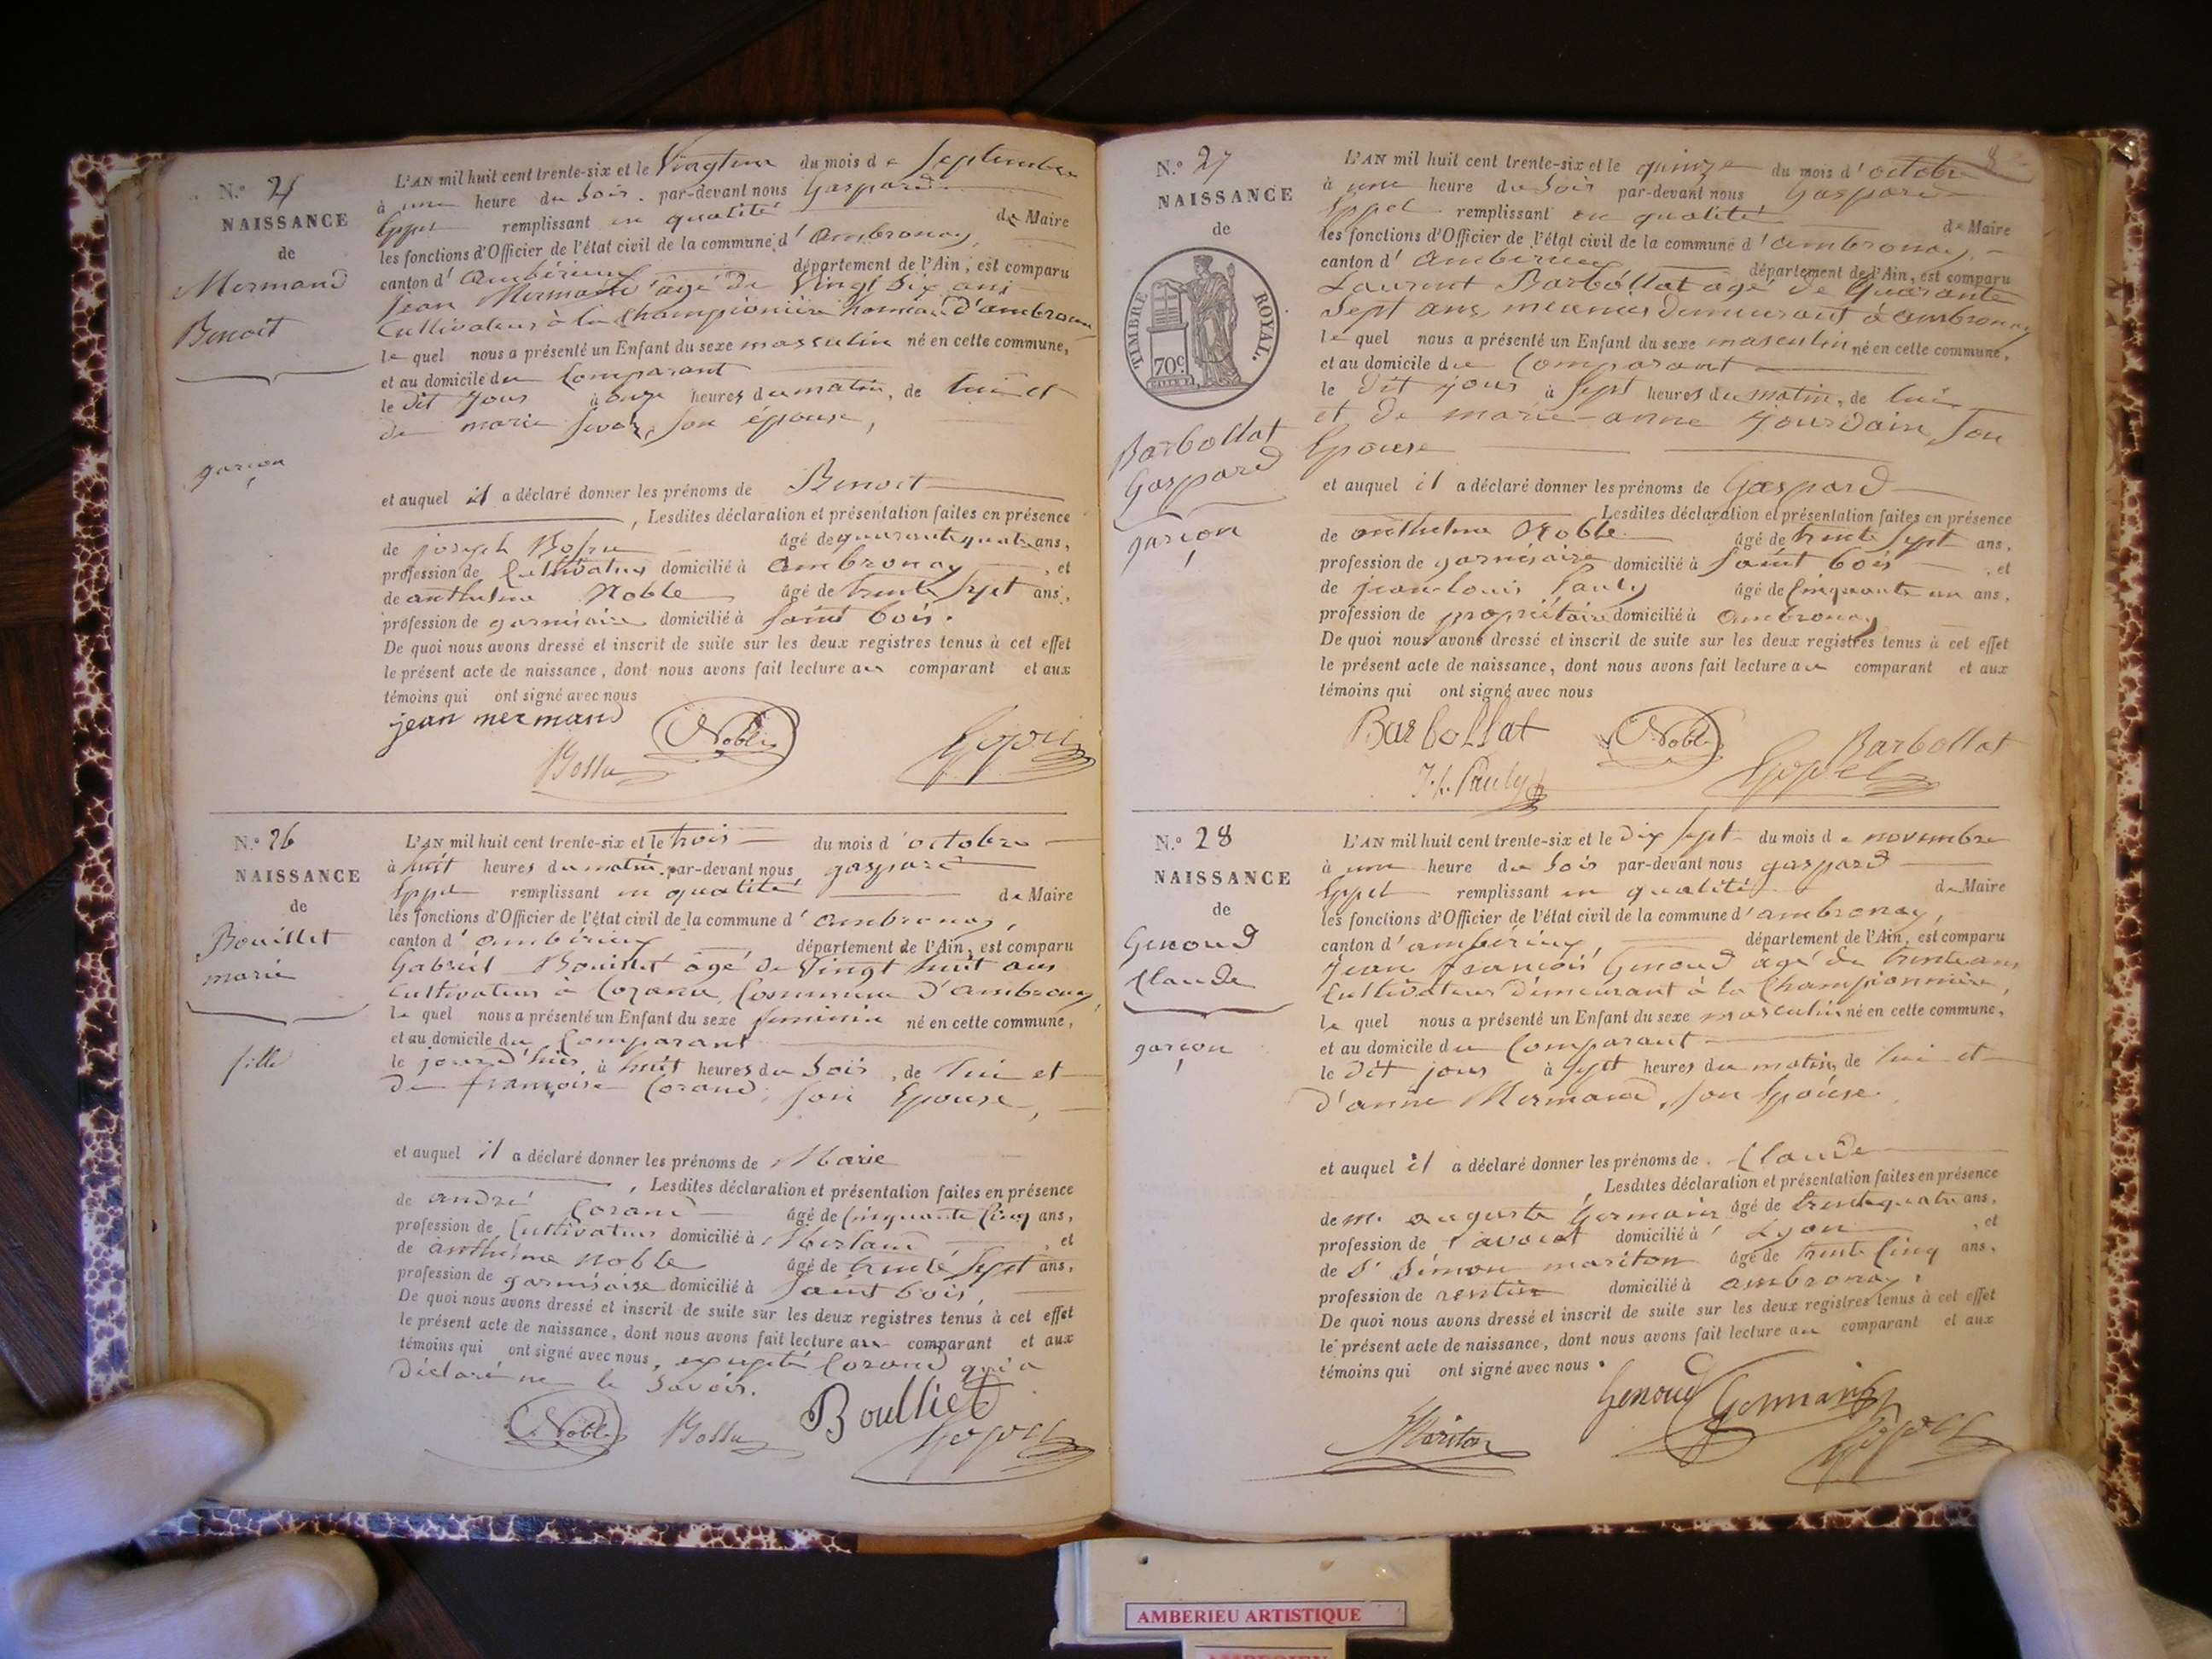 N.o 25
NAISSANCE
de
Mermand
Benoit
garçon
L'AN mil huit cent trente-six et le Vingt un du mois de Septembre
à une heure du Soir. par-devant nous Gaspard
Eppel remplissant en qualité de Maire
les fonctions d'Officier de l'état civil de la commune d'ambronay,
canton d'ambérieux département de l'Ain, est comparu
Jean Mermand âgé de Vingt Six ans
Cultivateur à la Championière hameau d'ambronay
le quel nous a présenté un Enfant du sexe masculin né en cette commune,
et au domicile du Comparant
le dit jour à onze heures du matin, de lui et
de marie son épouse,
et auquel il a déclaré donner les prénoms de Benoit
, Lesdites déclaration et présentation faites en présence
de joseph Bossu âgé de quarante quatre ans,
profession de Cultivateur domicilié à ambronay, et
de anthelme Noble âgé de trente Sept ans,
profession de garnisaire domicilié à Saint bois.
De quoi nous avons dressé et inscrit de suite sur les deux registres tenus à cet effet
le présent acte de naissance, dont nous avons fait lecture au comparant et aux
témoins qui ont signé avec nous
jean mermand Noble
Bossu Eppel
N.o 26
NAISSANCE
de
Bouillet
marie
fille
L'AN mil huit cent trente-six et le trois du mois d'octobre
à huit heures du matin. par-devant nous gaspard
Eppel remplissant en qualité de Maire
les fonctions d'Officier de l'état civil de la commune d'ambronay,
canton d'ambérieux département de l'Ain, est comparu
Gabriel Bouillet âgé de Vingt huit ans
Cultivateur à Corand, Commune d'ambronay,
le quel nous a présenté un Enfant du sexe feminin né en cette commune,
et au domicile du Comparant
le jour d'hier, à huit heures du Soir, de lui et
de françoise Corand, son Epouse,
et auquel il a déclaré donner les prénoms de Marie
, Lesdites déclaration et présentation faites en présence
de andré Corand âgé de Cinquante Cinq ans,
profession de Cultivateur domicilié à, et
de anthelme noble âgé de trente Sept ans,
profession de garnisaire domicilié à Saint bois,
De quoi nous avons dressé et inscrit de suite sur les deux registres tenus à cet effet
le présent acte de naissance, dont nous avons fait lecture au comparant et aux
témoins qui ont signé avec nous, excepté Corand qui a
déclaré ne le Savoir.
Noble Bossu Boulliet
Eppel
N.o 27
NAISSANCE
de
TIMBRE ROYAL.
70c
Barbollat
Gaspard
garçon
L'AN mil huit cent trente-six et le quinze du mois d'octobre
à une heure du Soir par-devant nous Gaspard
Eppel remplissant en qualité de Maire
les fonctions d'Officier de l'état civil de la commune d'ambronay,
canton d'ambérieux département de l'Ain, est comparu
Laurent Barbollat âgé de Quarante
Sept ans, demeurant à ambronay
le quel nous a présenté un Enfant du sexe masculin né en cette commune,
et au domicile du Comparant
le dit jour à Sept heures du matin, de lui
et de marie-anne Jourdain, son
Epouse
et auquel il a déclaré donner les prénoms de Gaspard
Lesdites déclaration et présentation faites en présence
de anthelme Noble âgé de trente Sept ans,
profession de garnisaire domicilié à Saint bois, et
de jean-louis Pauly âgé de Cinquante un ans,
profession de propriétaire domicilié à ambronay
De quoi nous avons dressé et inscrit de suite sur les deux registres tenus à cet effet
le présent acte de naissance, dont nous avons fait lecture au comparant et aux
témoins qui ont signé avec nous
Barbollat Noble Barbollat
J. L. Pauly Eppel
N.o 28
NAISSANCE
de
Genoud
Claude
garçon
L'AN mil huit cent trente-six et le dix Sept du mois de novembre
à une heure du Soir par-devant nous gaspard
Eppel remplissant en qualité de Maire
les fonctions d'Officier de l'état civil de la commune d'ambronay,
canton d'ambérieux, département de l'Ain, est comparu
Jean françois Genoud âgé de trente ans
Cultivateur demeurant à la Championnière,
le quel nous a présenté un Enfant du sexe masculin né en cette commune,
et au domicile du Comparant
le dit jour à Sept heures du matin, de lui et
d'anne Mermand, son Epouse.
et auquel il a déclaré donner les prénoms de Claude
, Lesdites déclaration et présentation faites en présence
de m. auguste Germain âgé de trente quatre ans,
profession d'avocat domicilié à Lyon, et
de Sr Simon mariton âgé de trente Cinq ans,
profession de rentier domicilié à ambronay,
De quoi nous avons dressé et inscrit de suite sur les deux registres tenus à cet effet
le présent acte de naissance, dont nous avons fait lecture au comparant et aux
témoins qui ont signé avec nous.
Genoud Germain
Mariton Eppel
AMBERIEU ARTISTIQUE